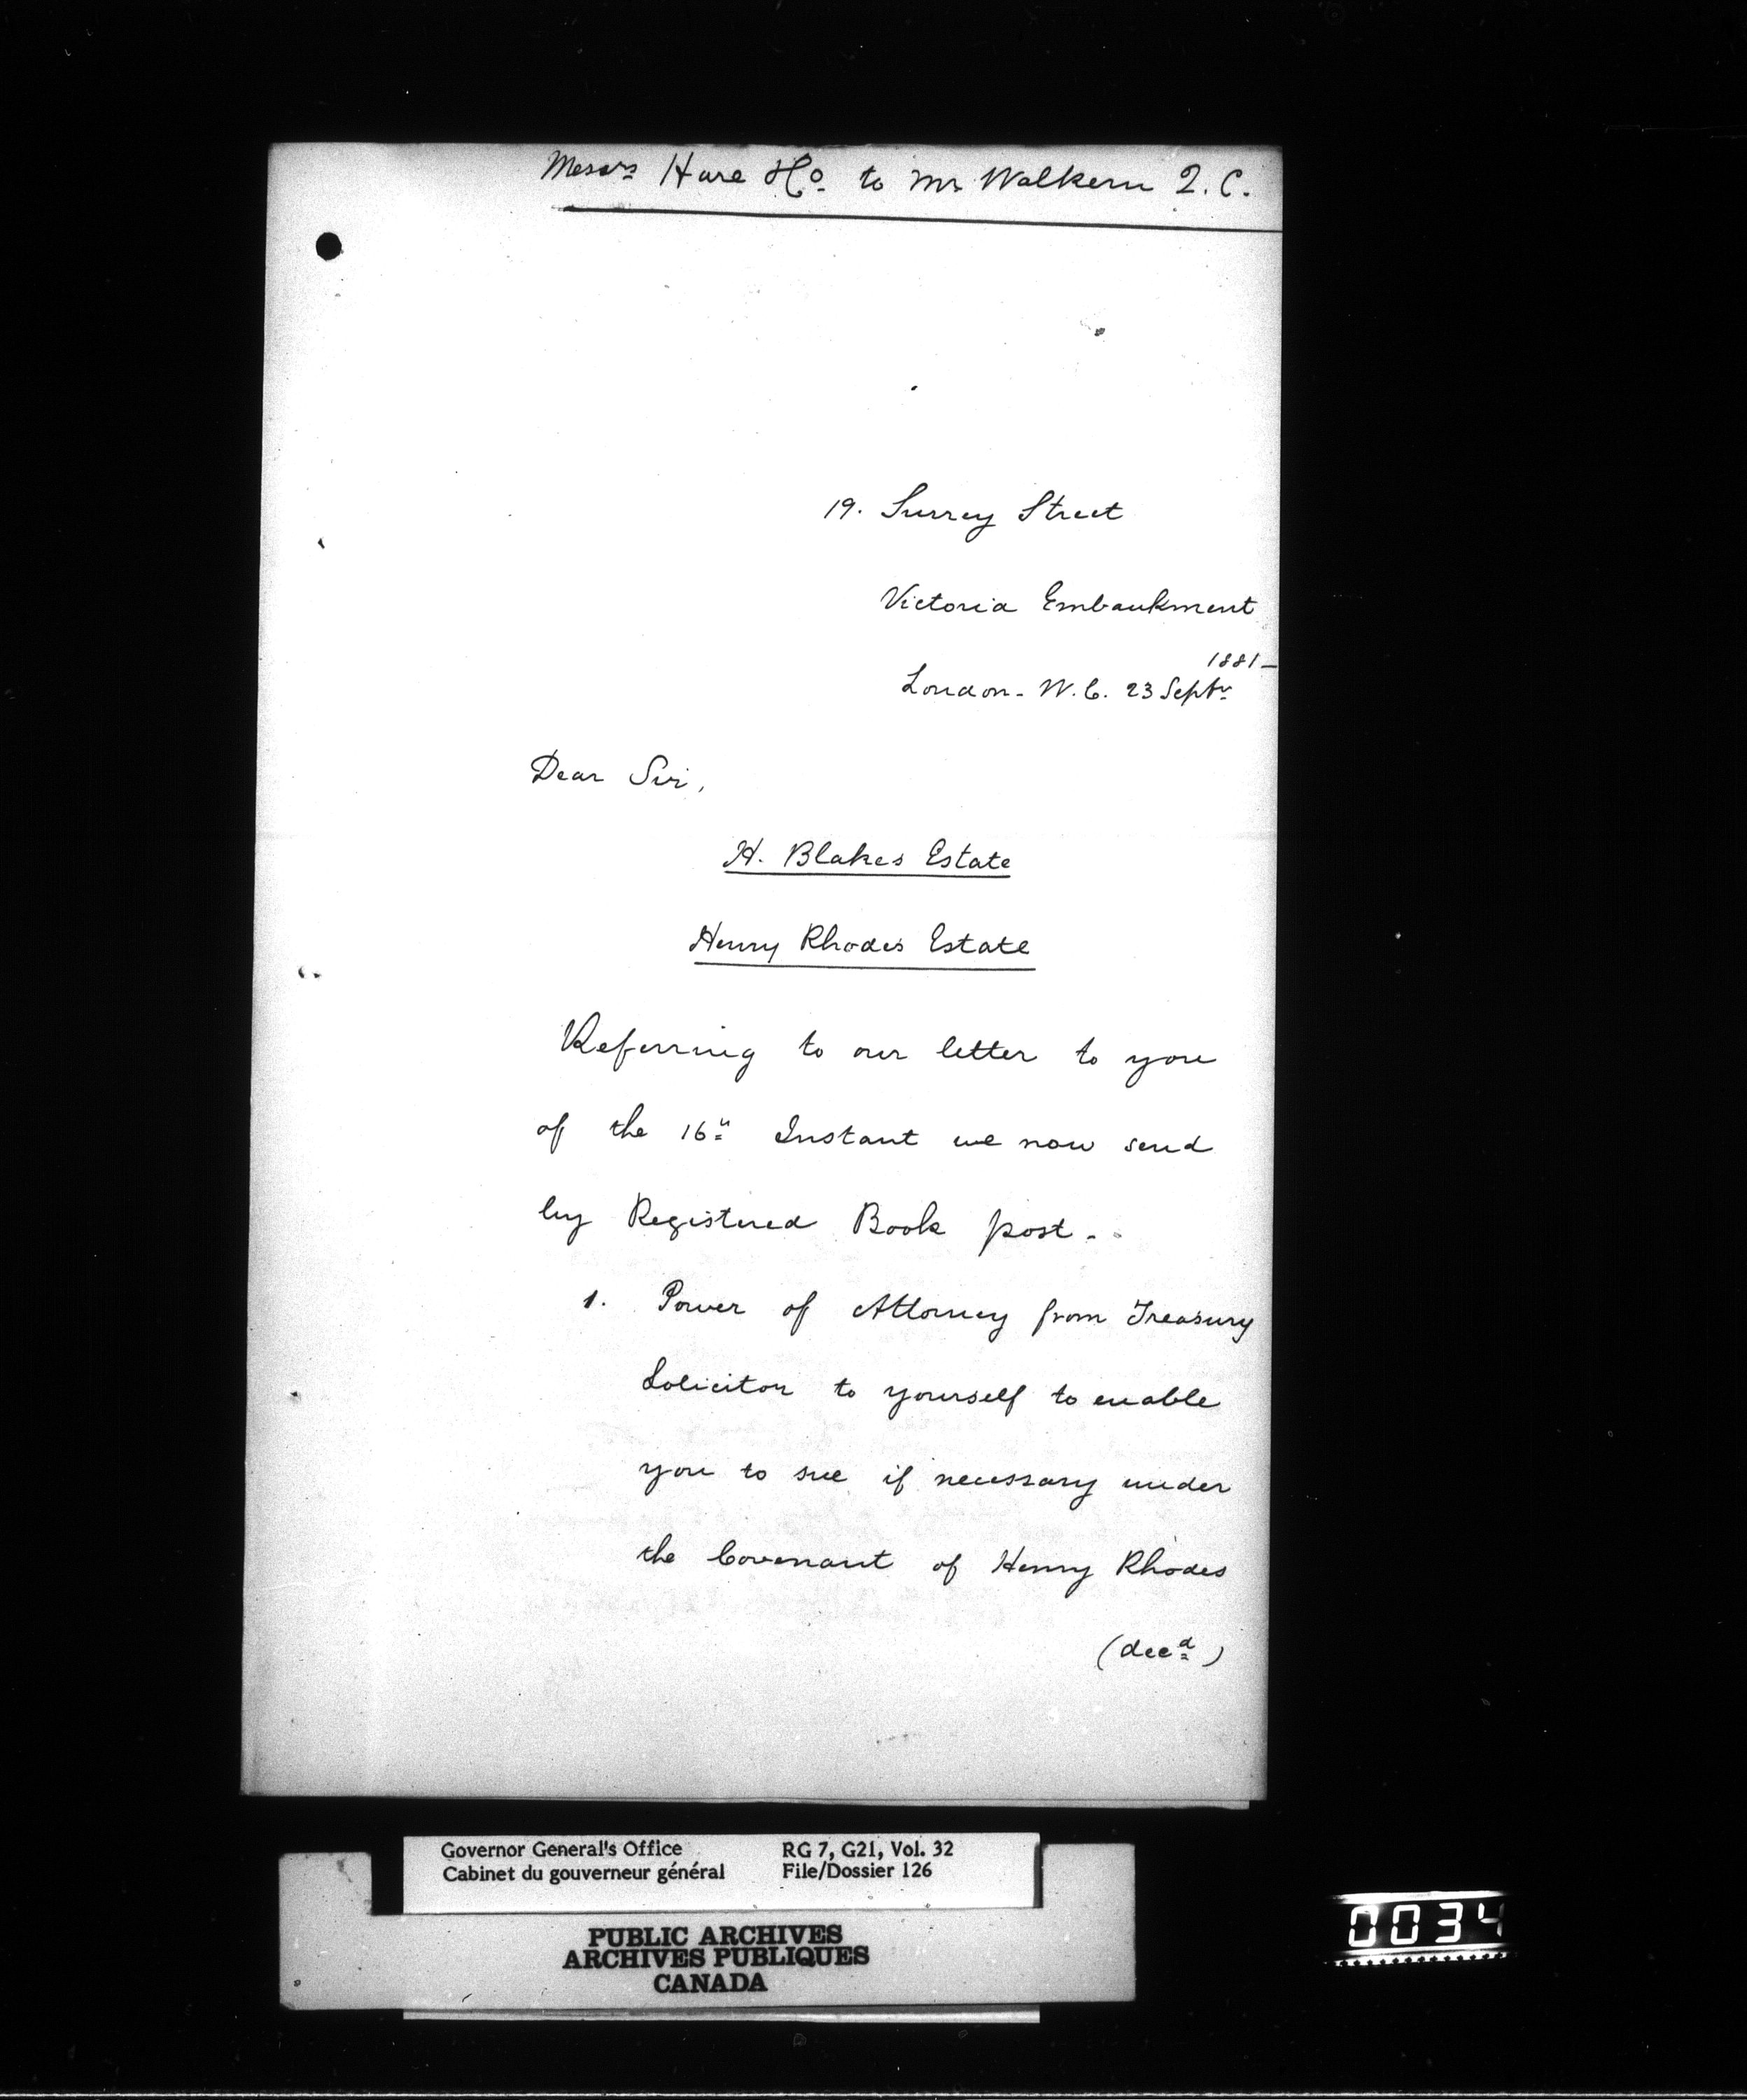 Messrs Hare & Co. to Mr Walkem Q.C.
19. Surrey Street
Victoria Embankment
1881-
London - W.C. 23 Septr
Dear Sir,
H. Blakes Estate
Henry Rhodes Estate
Referring to our letter to you
of the 16th Instant we now send
by Registered Book post -
1. Power of Attorney from Treasury
Solicitor to yourself to enable
you to sue if necessary under
the Covenant of Henry Rhodes
(decd)
Governor General's Office RG 7, G21, Vol. 32
Cabinet du gouverneur général File/Dossier 126
PUBLIC ARCHIVES
ARCHIVES PUBLIQUES
CANADA
0034